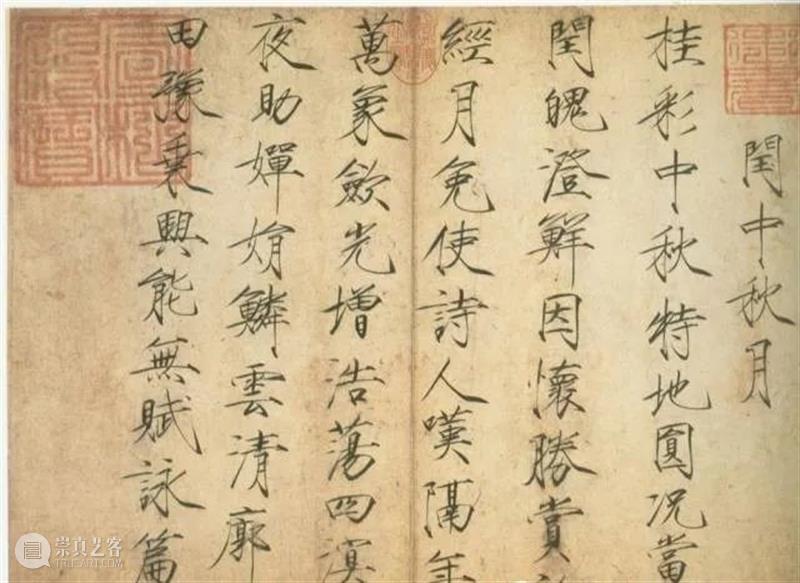 閏中秋月
桂彩中秋特地圓况當
閏魄澄鮮因懷勝賞
經月免使詩人嘆隔年
萬象歛光增浩蕩四溟
夜助嬋娟鱗雲清廓
田豫乗興能無賦詠篇
崇真艺客